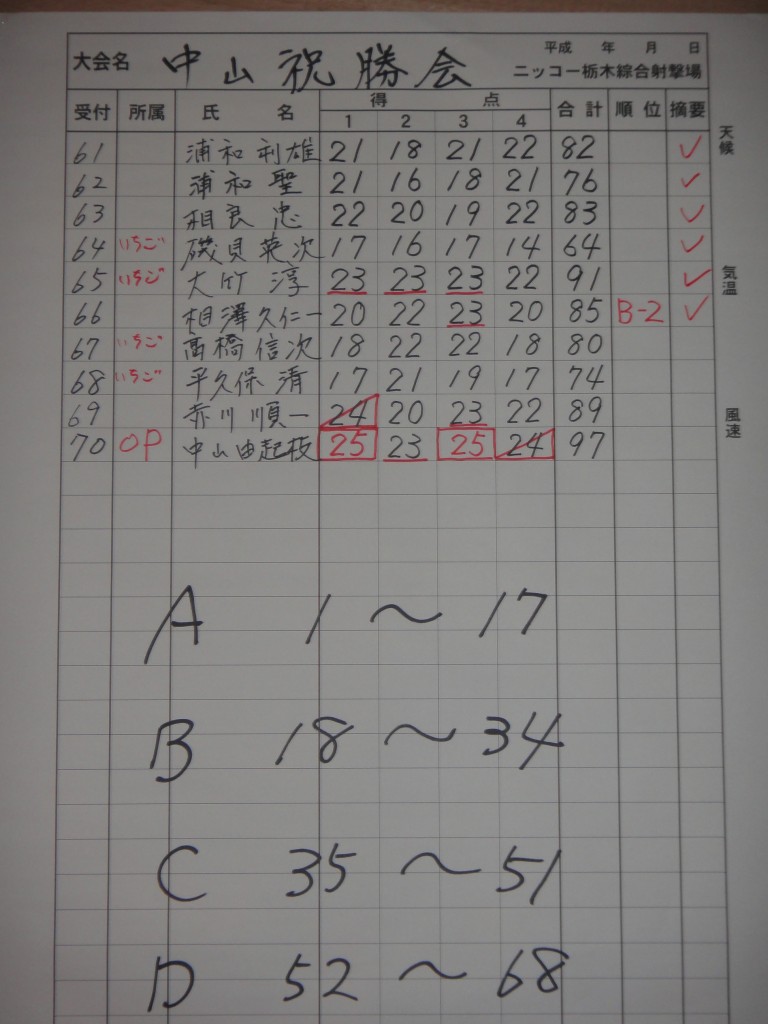 大会名 中山祝勝会 平成 年 月 日
ニッコー栃木綜合射撃場
受付 所属 氏 名 得 点 合計 順位 摘要
1 2 3 4
天候
61 浦和利雄 21 18 21 22 82 ✓
62 浦和聖 21 16 18 21 76 ✓
63 相良忠 22 20 19 22 83 ✓
64 いちご 磯貝英次 17 16 17 14 64 ✓
65 いちご 大竹淳 23 23 23 22 91 ✓
気温
66 相澤久仁一 20 22 23 20 85 B-2 ✓
67 いちご 髙橋信次 18 22 22 18 80
68 いちご 平久保清 17 21 19 17 74
69 赤川順一 24 20 23 22 89
風速
70 OP 中山由起枝 25 23 25 24 97
A 1 〜 17
B 18 〜 34
C 35 〜 51
D 52 〜 68